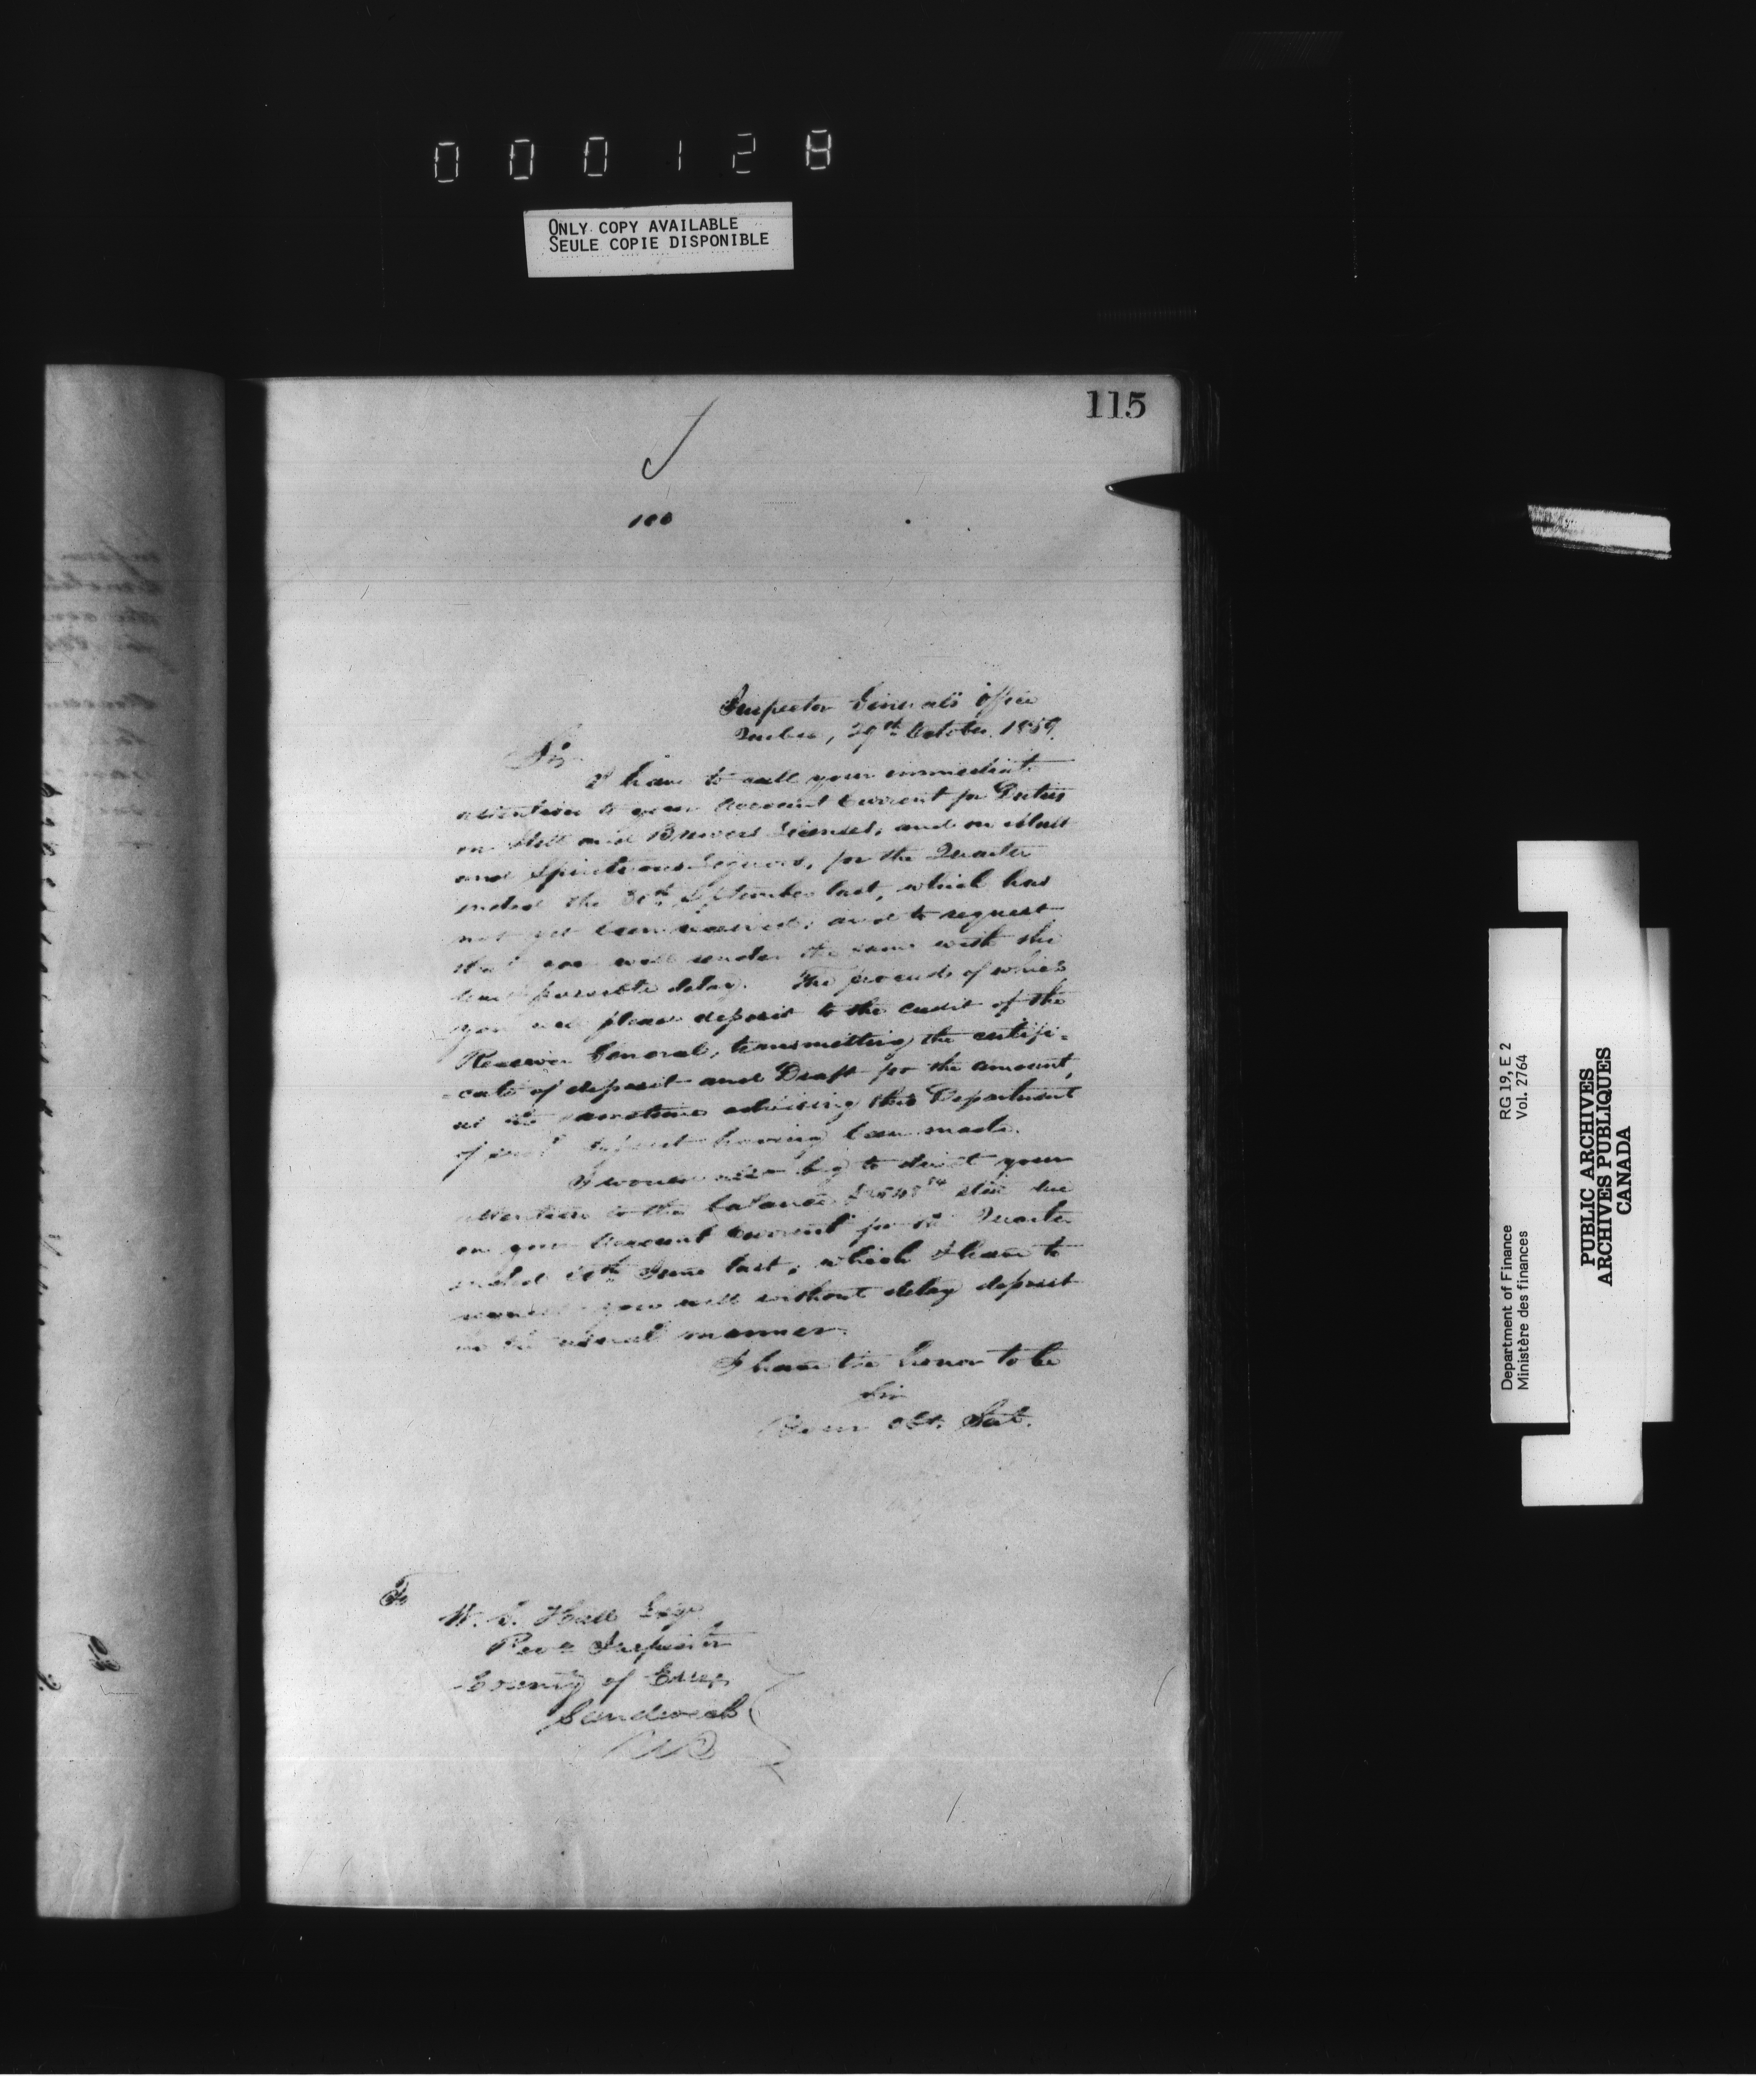 000128
ONLY COPY AVAILABLE
SEULE COPIE DISPONIBLE
115
100
Inspector General's Office
Quebec, 29th October 1859.
Sir
I have to call your immediate
attention to your Account Current for Duties
on Still and Brewers Licenses, and on Malt
and Spirituous Liquors, for the Quarter
ended the 30th September last, which has
not yet been received; and to request
that you will render the same with the
least possible delay. The proceeds of which
you will please deposit to the credit of the
Receiver General, transmitting the certifi-
-cate of deposit and Draft for the amount,
at the same time advising this Department
of such deposit having been made.
I would also beg to direct your
attention to the balance still due
on your Account Current for the Quarter
ended 30th June last, which I have to
request you will without delay deposit
in the usual manner.
I have the honor to be
Sir
Your Obt. Sert.
To
W. S. Hall Esqr
Reve Inspector
County of Essex
Sandwich
RG 19, E 2
Vol. 2764
Department of Finance
Ministère des finances
PUBLIC ARCHIVES
ARCHIVES PUBLIQUES
CANADA